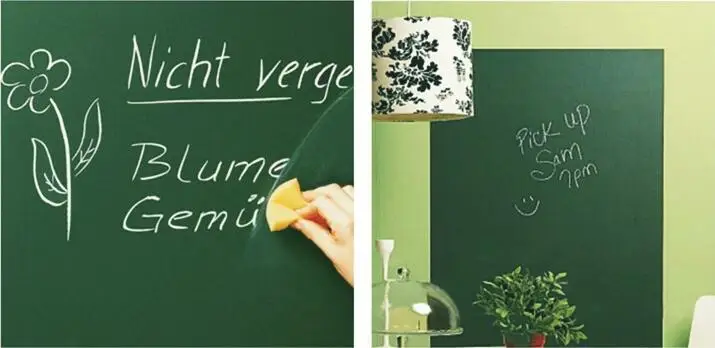 Nicht verge
Blume
Gemü
Pick up
Sam
7pm